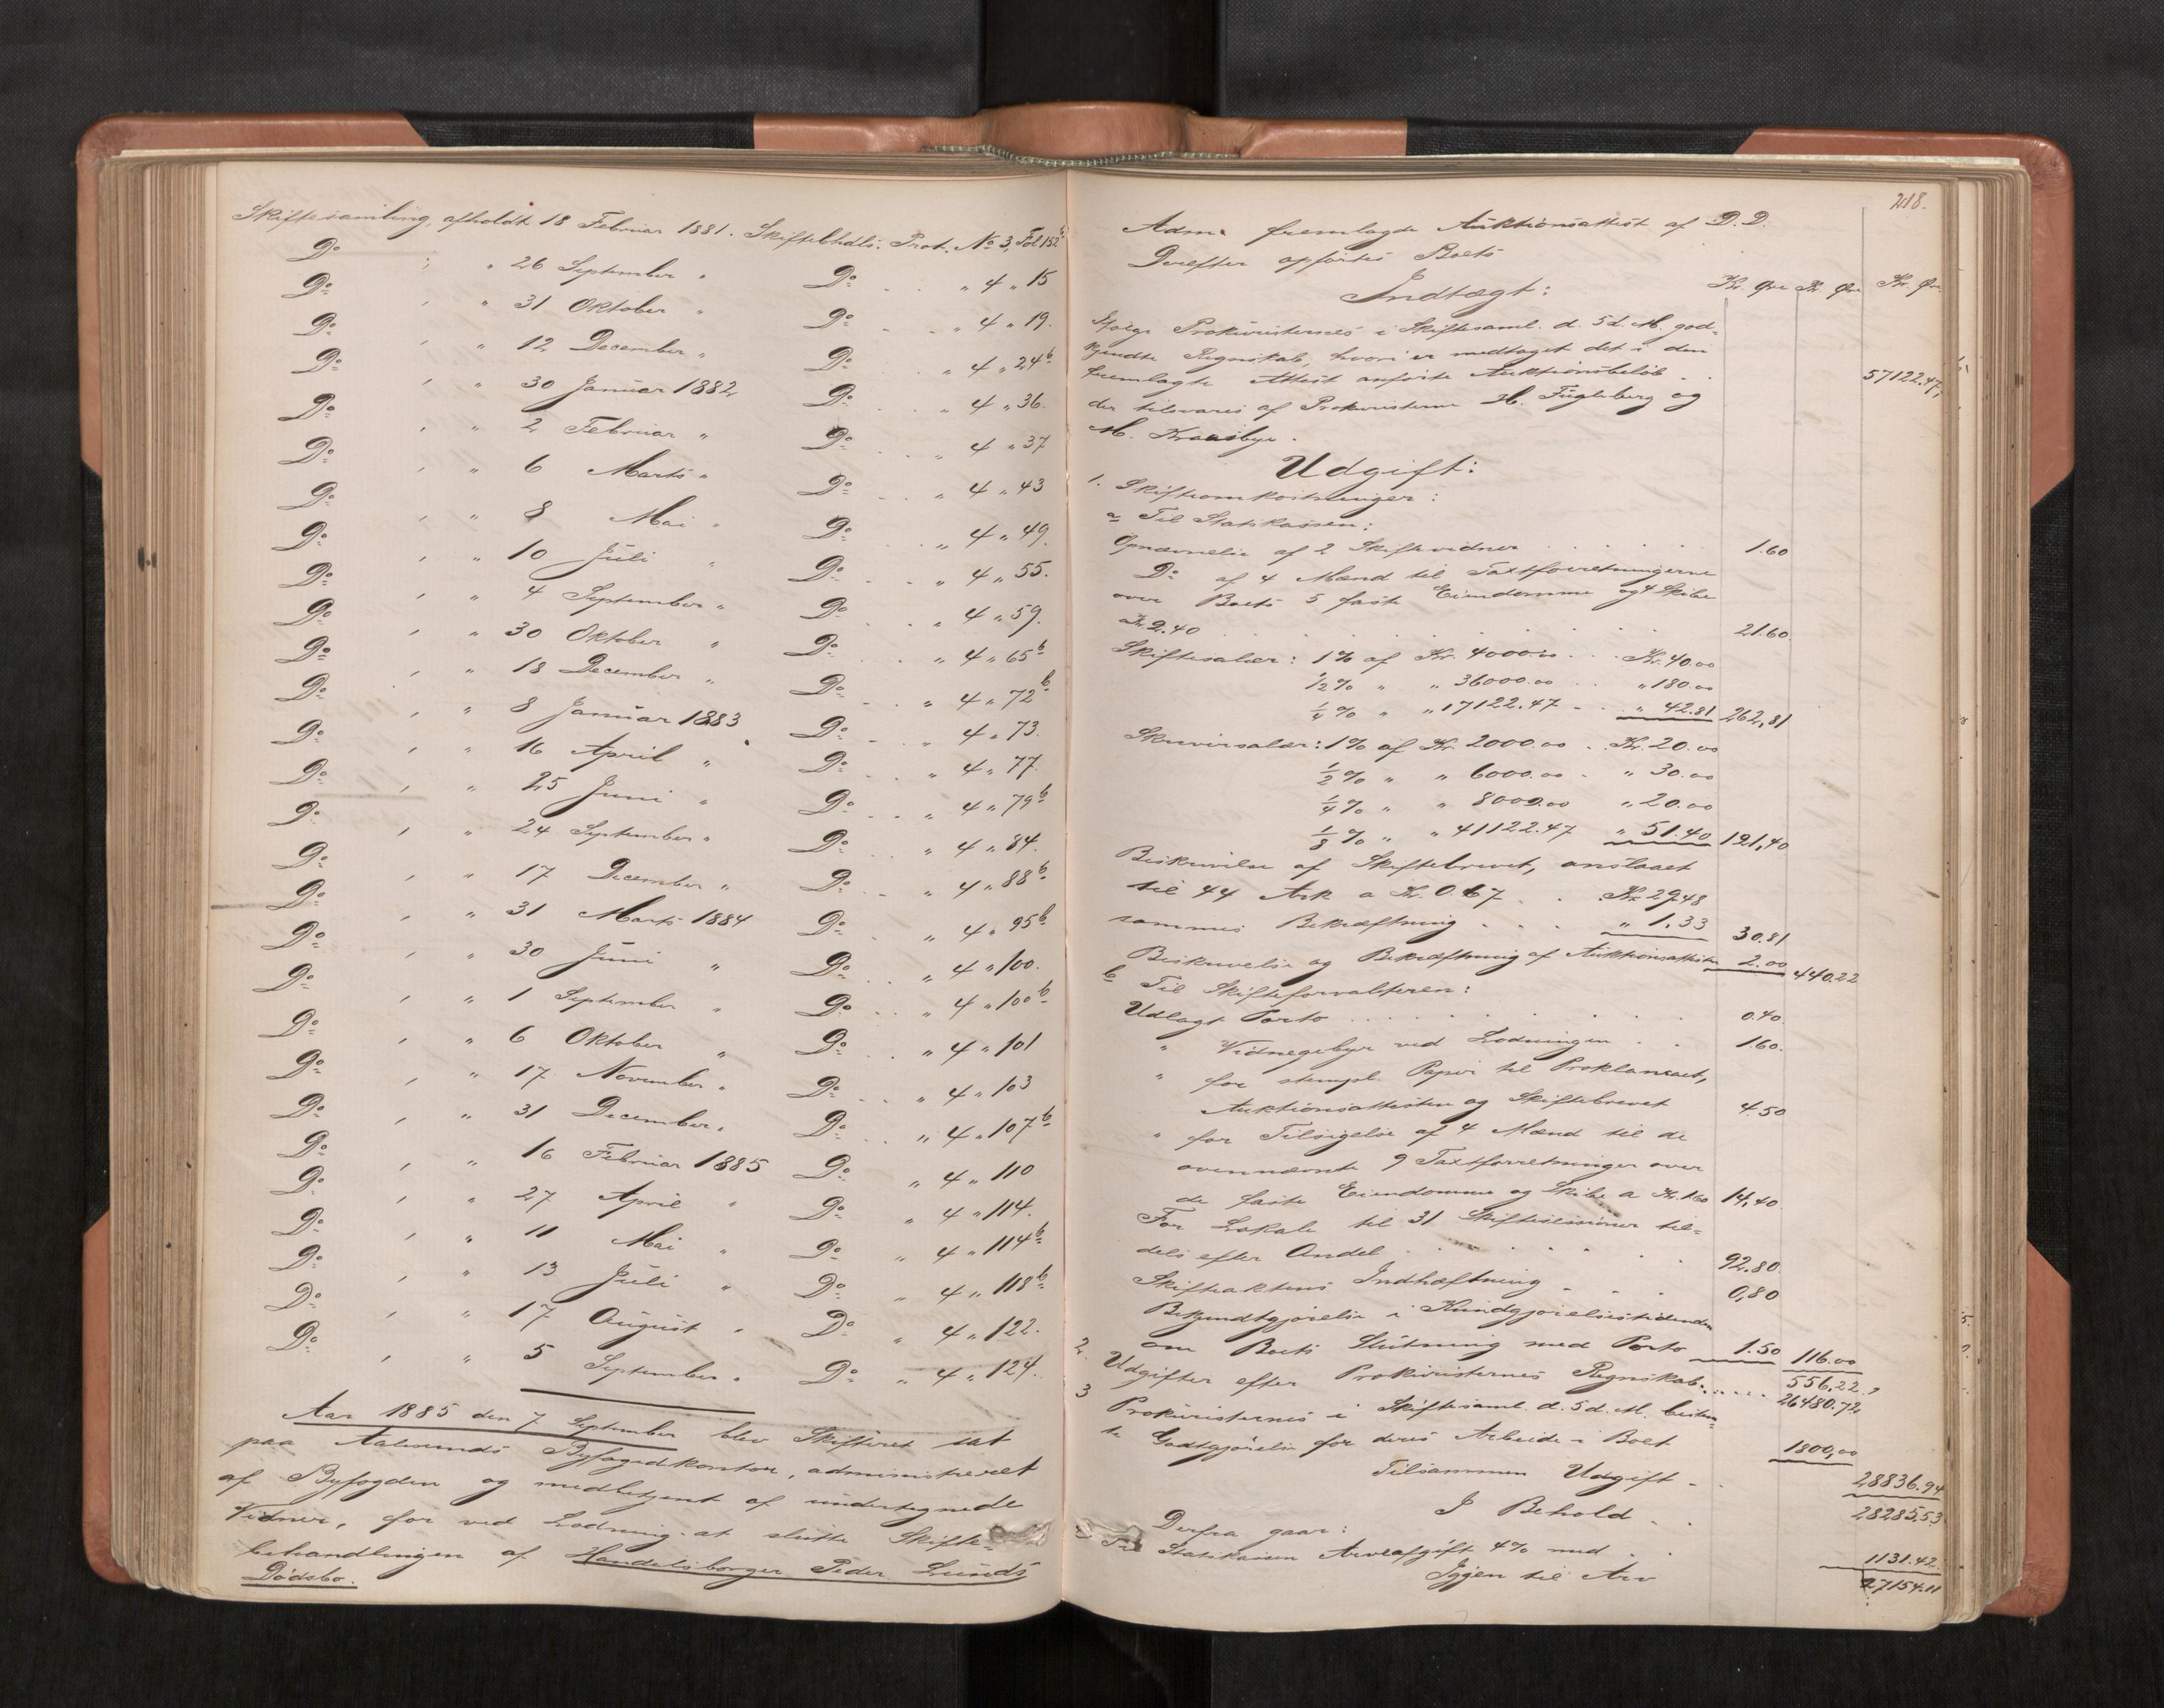 Skiftesamling, afholdt 18 Februar 1881. Skiftebhdls. Prot. No 3, Fol 152b
Do , " 26 September " Do " 4 " 15
Do , " 31 Oktober " Do " 4 " 19.
Do , " 12 December " Do " 4 " 24b
Do , " 30 Januar 1882 Do " 4 " 36.
Do , " 2 Februar " Do " 4 " 37
Do , " 6 Marts " Do " 4 " 43
Do , " 8 Mai " Do " 4 " 49.
Do , " 10 Juli " Do " 4 " 55.
Do , " 4 September " Do " 4 " 59.
Do , " 30 Oktober " Do " 4 " 65b
Do , " 18 December " Do " 4 " 72b
Do , " 8 Januar 1883 Do " 4 " 73.
Do , " 16 April " Do " 4 " 77.
Do , " 25 Juni " Do " 4 " 79b
Do , " 24 September " Do " 4 " 84.
Do , " 17 December " Do " 4 " 88b
Do , " 31 Marts 1884 Do " 4 " 95b
Do , " 30 Juni " Do " 4 " 100.
Do , " 1 September " Do " 4 " 100b
Do , " 6 Oktober " Do " 4 " 101
Do , " 17 November " Do " 4 " 103
Do , " 31 December " Do " 4 " 107b
Do , " 16 Februar 1885 Do " 4 " 110
Do , " 27 April " Do " 4 " 114.
Do , " 11 Mai " Do " 4 " 114b
Do , " 13 Juli " Do " 4 " 118b
Do , " 17 August " Do " 4 " 122.
Do , " 5 September " Do " 4 " 124.
Aar 1885 den 7 September blev Skifteret sat
paa Aalesunds Byfogedkontor, administreret
af Byfogden og medbetjent af undertegnede
Vidner, for ved Lodning at slutte Skifte-
behandlingen af Handelsborger Peder Lunds
Dødsbo.
218.
Adm. fremlagde Auktionsattest af D. D.
Derefter opførtes Boets
Indtægt: Kr. Øre Kr. Øre Kr. Øre
Ifølge Prokuristernes i Skiftesaml. d. 5 d. M. god-
kjendte Regnskab, hvori er medtaget det i den
fremlagte Attest anførte Auktionsbeløb 57122.47,
der tilsvares af Prokuristerne H. Fugleberg og
M. Kraasbye.
Udgift:
1. Skifteomkostninger:
a Til Statskassen:
Opnævnelse af 2 Skiftevidner 1.60
Do af 4 Mænd til Taxtforretningerne
over Boets 5 faste Eiendomme og 4 Skibe
Kr. 2.40 21.60.
Skiftesalær: 1% af Kr. 4000.00 Kr. 40.00
1/2% " " 36000.00 " 180.00
1/4% " " 17122.47 " 42.81 262,81
Skriversalær: 1% af Kr. 2000.00 Kr. 20.00
1/2% " " 6000.00 " 30.00
1/4% " " 8000.00 " 20.00
1/8% " " 41122.47 " 51.40 121,40
Beskrivelse af Skiftebrevet, anslaaet
til 44 Ark a Kr. 0.67 Kr. 29.48
sammes Bekræftning " 1.33 30.81
Beskrivelse og Bekræftning af Auktionsattesten 2.00 440.22
b Til Skifteforvalteren:
Udlagt Porto 0.40.
" Vidnegebyr ved Lodningen 1.60.
" for stempl. Papir til Proklamaet,
Auktionsattesten og Skiftebrevet 4.50
" for Tilsigelse af 4 Mænd til de
ovennævnte 9 Taxtforretninger over
de faste Eiendomme og Skibe a Kr. 1.60 14,40.
For Lokale til 31 Skiftesessioner til-
dels efter Andel 92.80.
Skifteaktens Indhæftning 0,80
Bekjendtgjørelse i Kundgjørelsestidenden
om Boets Slutning med Porto 1.50 116.00
556.22.
2. Udgifter efter Prokuristernes Regnskab 26480.72
3 Prokuristernes i Skiftesaml. d. 5 d. M. bestem-
te Godtgjørelse for deres Arbeide i Boet 1800,00
Tilsammen Udgift 28836.94
I Behold 28285.53
Derfra gaar:
Til Statskassen Arveafgift 4% med 1131.42.
Igjen til Arv 27154.11